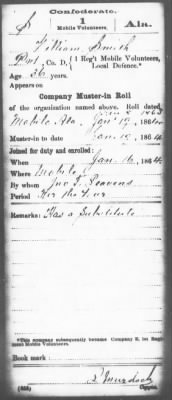 Confederate.
S 1 Ala.
Mobile Volunteers.
William Smith
Pvt, Co. D, 1 Reg't Mobile Volunteers,
Local Defence.*
Age 36 years.
Appears on
Company Muster-in Roll
of the organization named above. Roll dated
Mobile Ala. Jan'y 19, 1864.
Muster-in to date Jan. 19, 1864.
Joined for duty and enrolled:
When Jan. 16, 1864.
Where Mobile
By whom Jno. T.
Period For the war
Remarks: Has a Substitute
*This company subsequently became Company E, 1st Regiment Mobile Volunteers.
Book mark
S. Murdock
(655) Copyist.